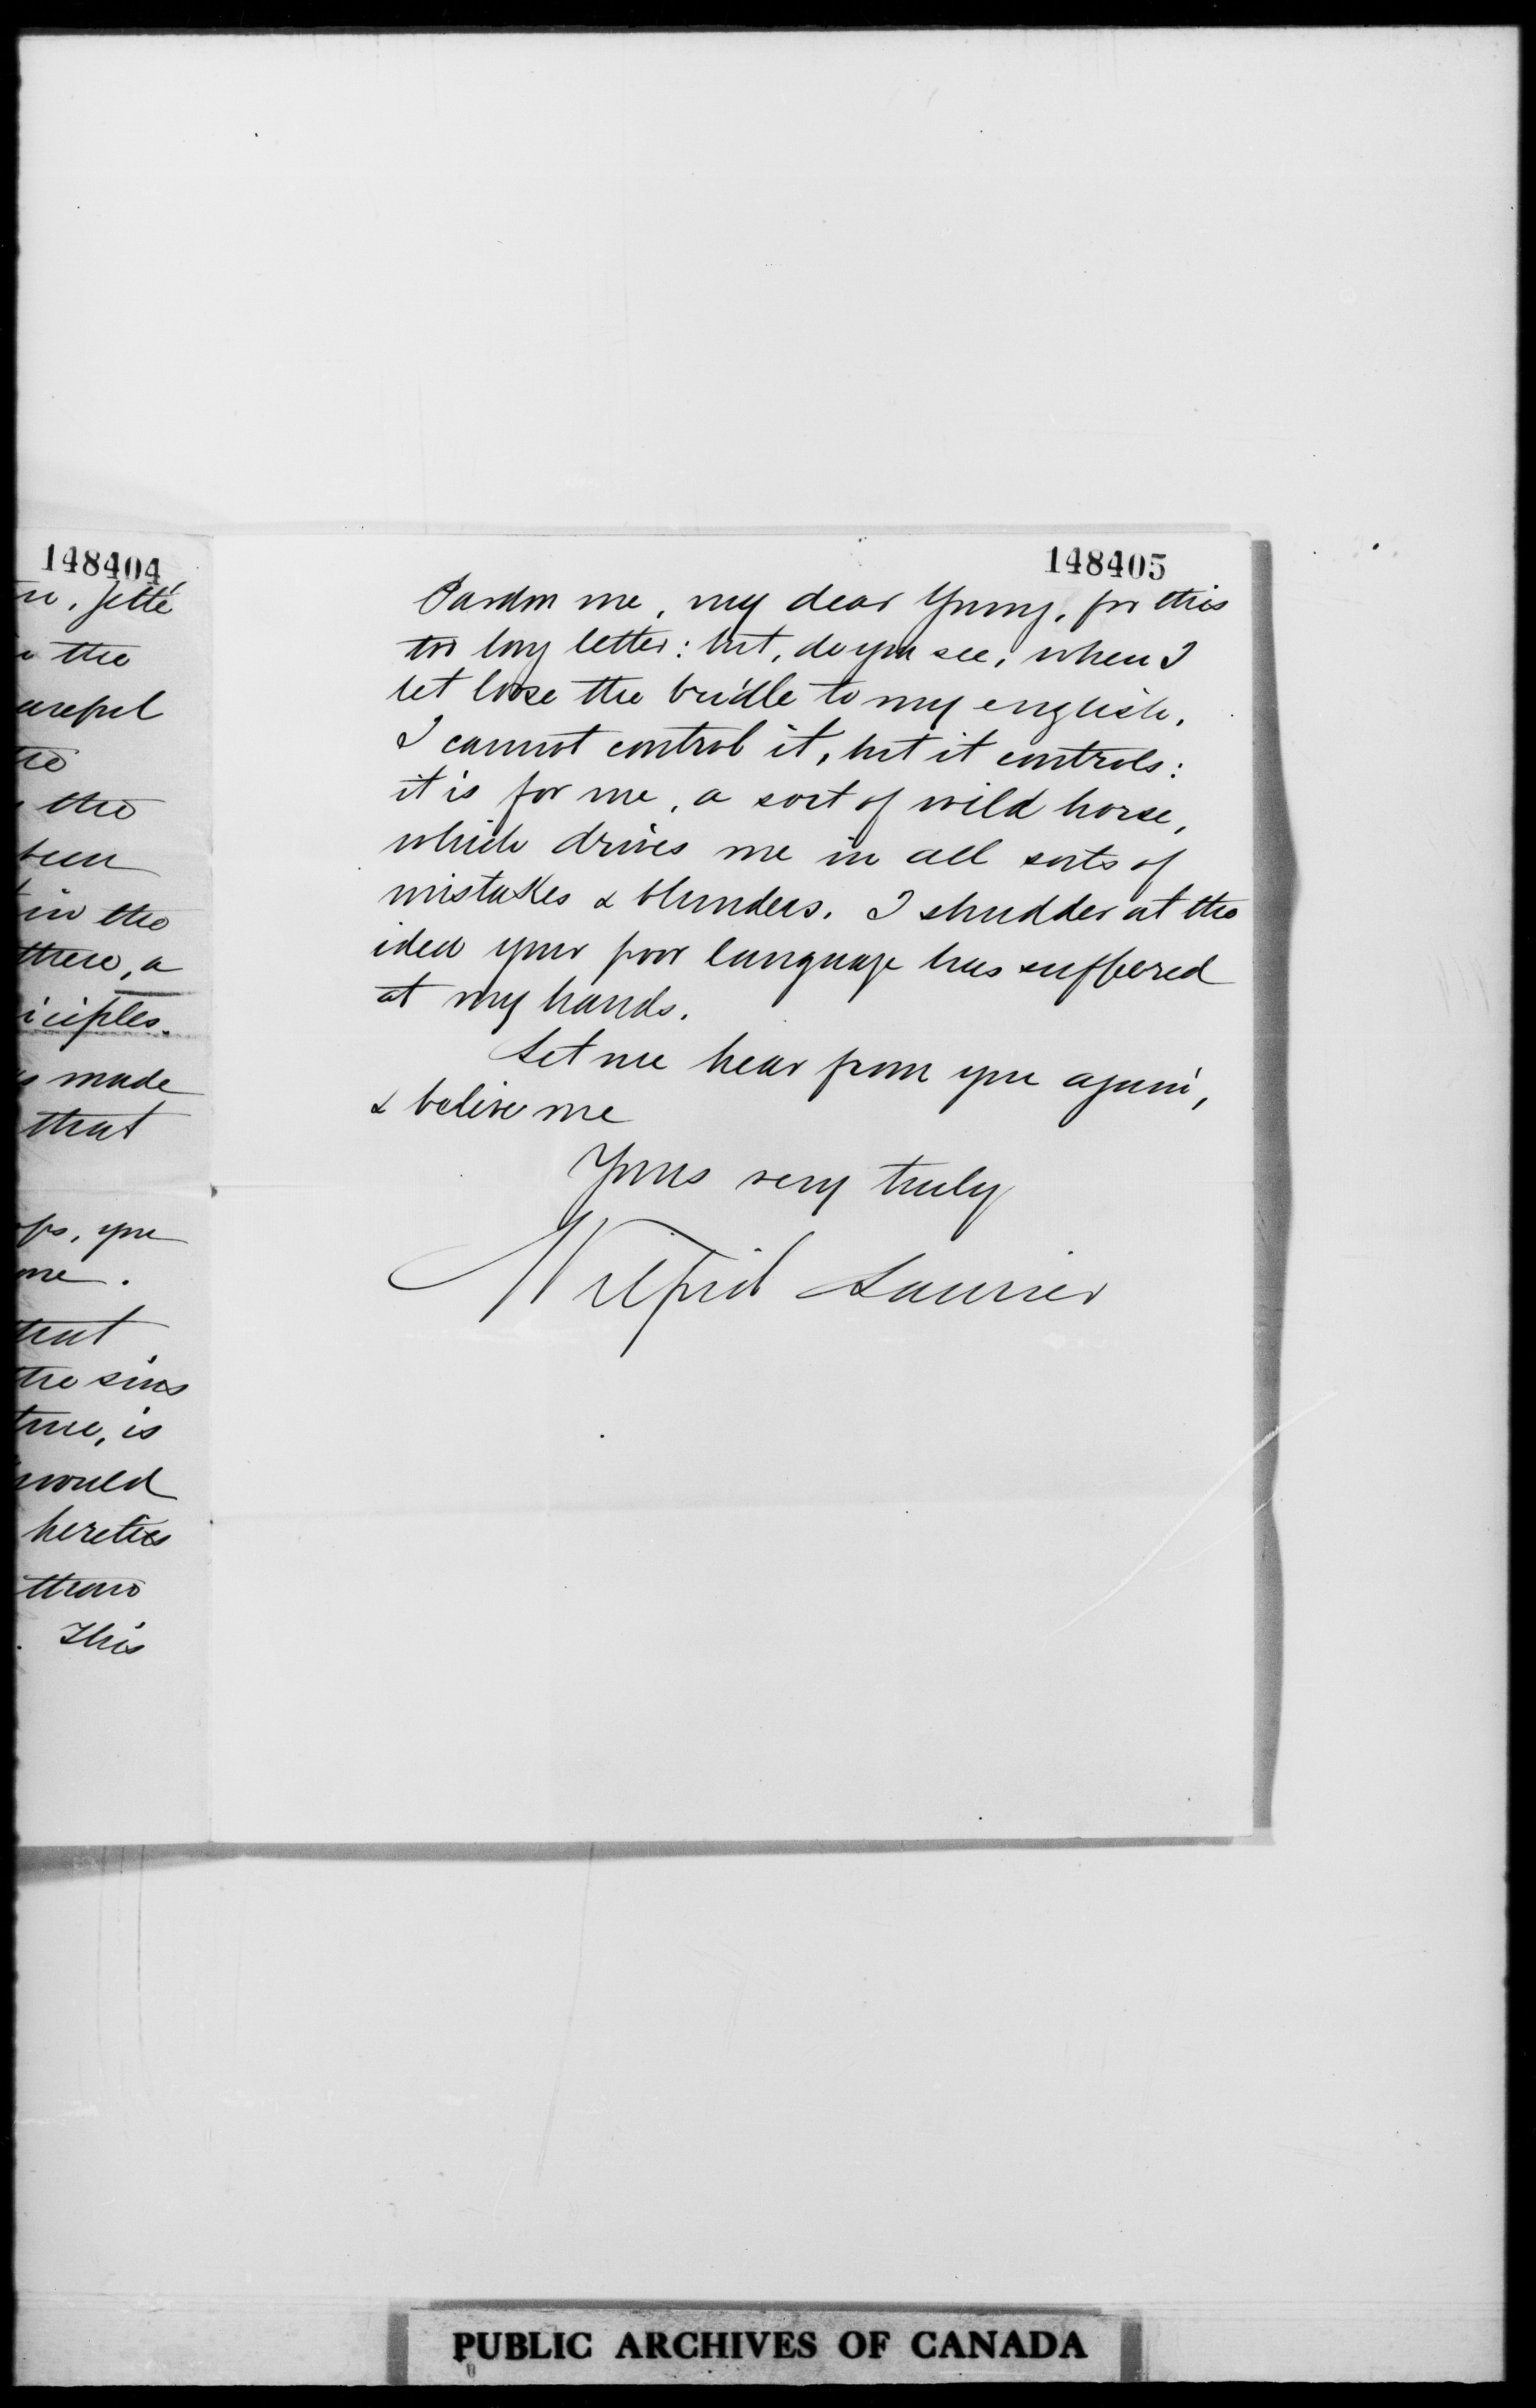 148404
, Jetté
the
careful
the
been
in the
there, a
iciples.
made
that
ps, you
me.
that
the sins
true, is
would
heretics
throw
. This
148405
Pardon me, my dear Young, for this
too long letter: but, do you see, when I
let loose the bridle to my english,
I cannot control it, but it controls:
it is for me, a sort of wild horse,
which drives me in all sorts of
mistakes & blunders. I shudder at the
idea your poor language has suffered
at my hands.
Let me hear from you again,
& belive me
Yours very truly
Wilfrid Laurier
PUBLIC ARCHIVES OF CANADA